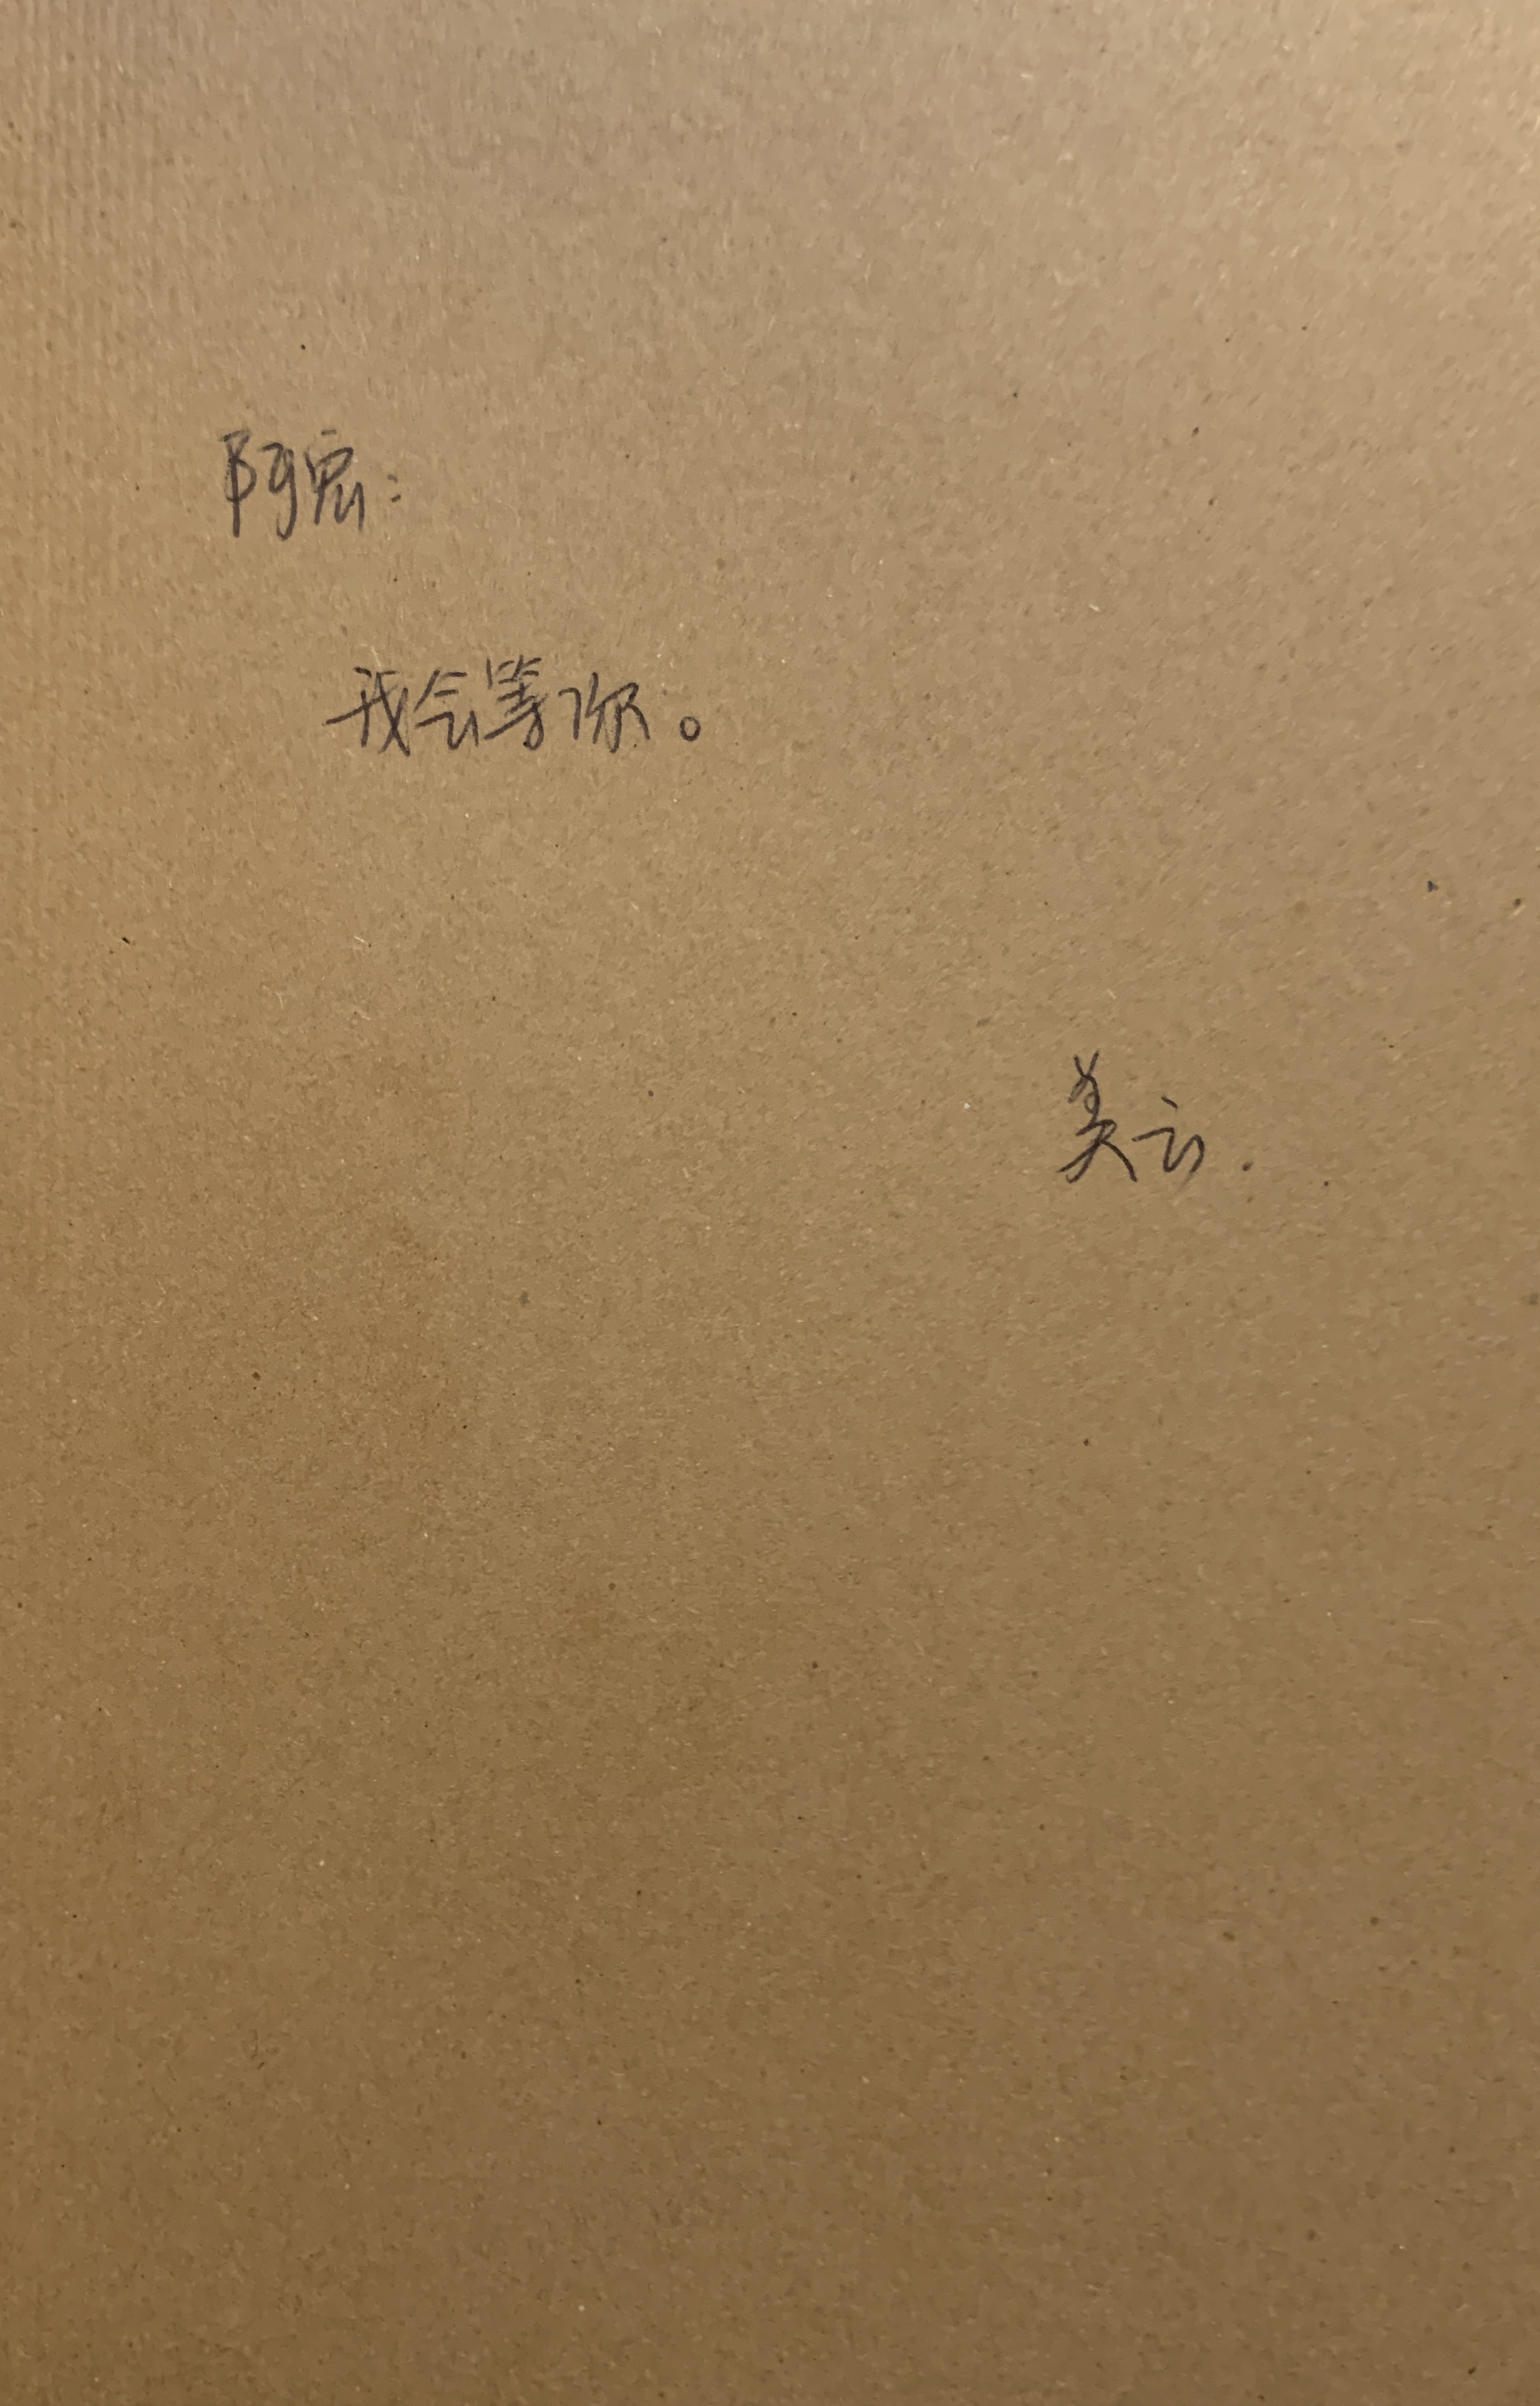 阿宏：
我会等你。
美云.